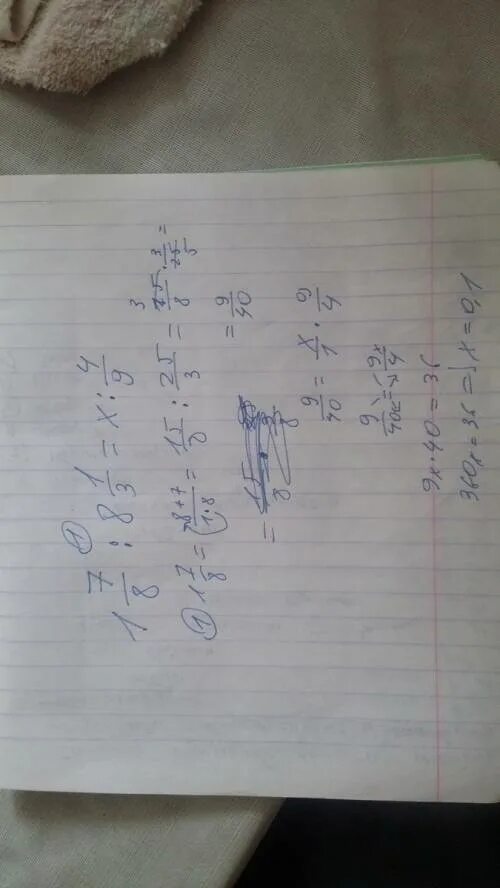 ①
1 7/8 : 8 1/3 = x : 4/9
① 1 7/8 = 8+7/1·8 = 15/8 : 25/3 = 15/8 · 3/25 =
3
5
= 9/40
= 15/8
9/40 = x/1 · 9/4
9/40 = 9x/4
9x·40=36
360x=36 =) x=0,1